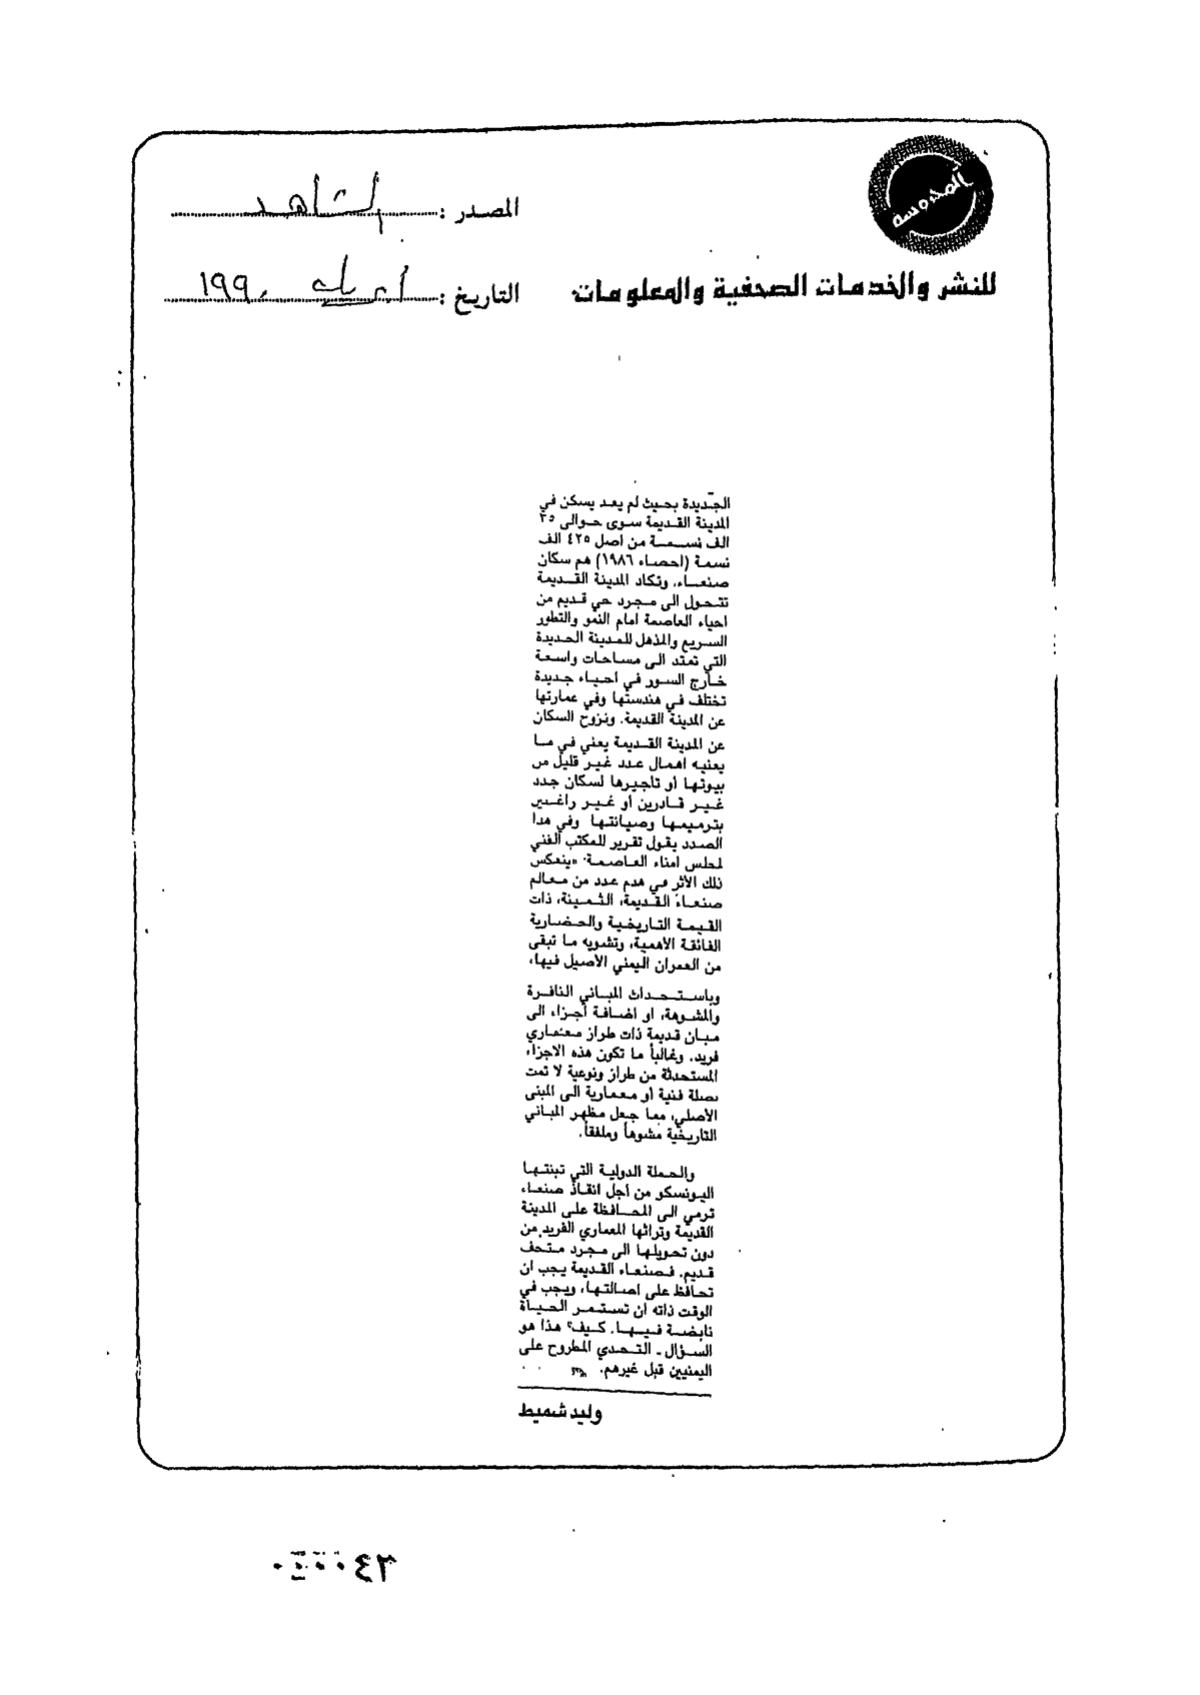 المحروسة
للنشر والخدمات الصحفية والمعلومات
المصدر : الشاهد
التاريخ : ابريل ١٩٩٠
الجديدة بحيث لم يعد يسكن في
المدينة القديمة سوى حوالى ٣٥
الف نسمة من اصل ٤٢٥ الف
نسمة (احصاء ١٩٨٦) هم سكان
صنعاء. وتكاد المدينة القديمة
تتحول الى مجرد حي قديم من
احياء العاصمة امام النمو والتطور
السريع والمذهل للمدينة الجديدة
التي تمتد الى مساحات واسعة
خارج السور في احياء جديدة
تختلف في هندستها وفي عمارتها
عن المدينة القديمة. ونزوح السكان
عن المدينة القديمة يعني في ما
يعنيه اهمال عدد غير قليل من
بيوتها أو تأجيرها لسكان جدد
غير قادرين أو غير راغبين
بترميمها وصيانتها وفي هذا
الصدد يقول تقرير للمكتب الفني
لمجلس امناء العاصمة: «ينعكس
ذلك الأثر في هدم عدد من معالم
صنعاء القديمة، الثمينة، ذات
القيمة التاريخية والحضارية
الفائقة الأهمية، وتشويه ما تبقى
من العمران اليمني الأصيل فيها،
وباستحداث المباني النافرة
والمشوهة، او اضافة أجزاء الى
مبان قديمة ذات طراز معماري
فريد. وغالباً ما تكون هذه الاجزاء
المستحدثة من طراز ونوعية لا تمت
بصلة فنية أو معمارية الى المبنى
الأصلي، مما جعل مظهر المباني
التاريخية مشوهاً وملفقاً.
والحملة الدولية التي تبنتها
اليونسكو من أجل انقاذ صنعاء
ترمي الى المحافظة على المدينة
القديمة وتراثها المعماري الفريد من
دون تحويلها الى مجرد متحف
قديم. فصنعاء القديمة يجب ان
تحافظ على اصالتها، ويجب في
الوقت ذاته ان تستمر الحياة
نابضة فيها. كيف؟ هذا هو
السؤال ـ التحدي المطروح على
اليمنيين قبل غيرهم.
وليد شميط